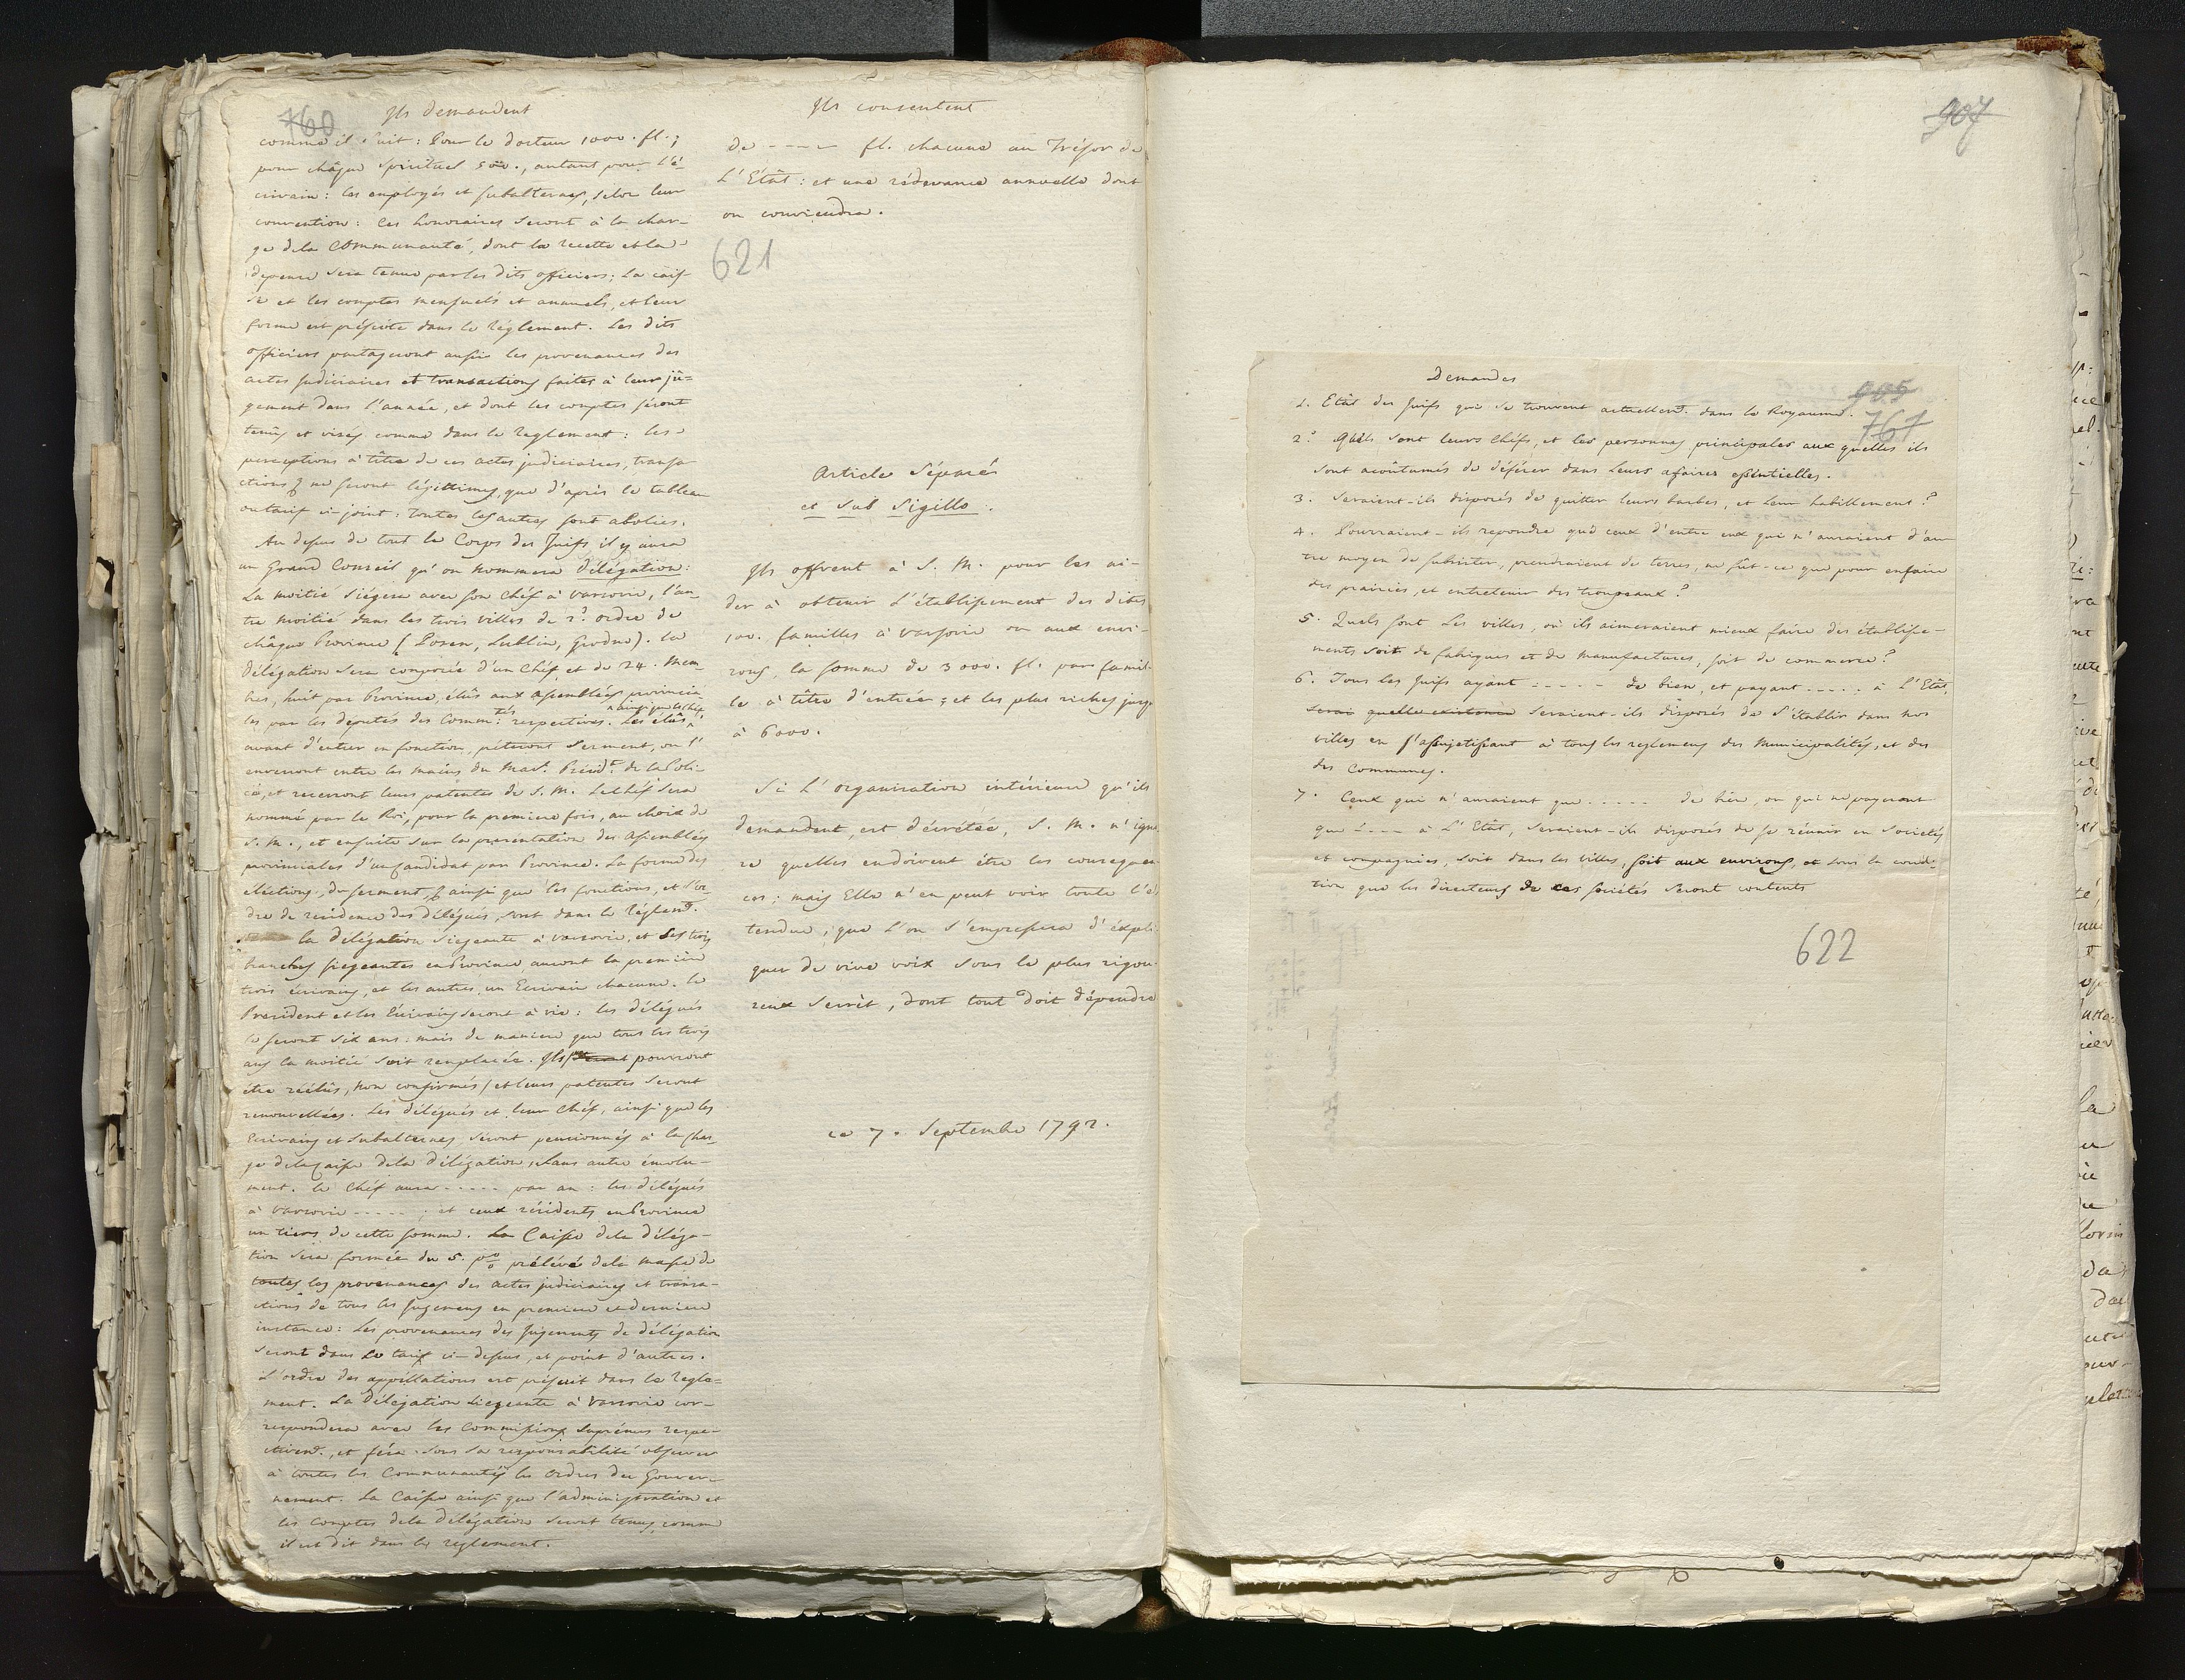 760
Ils demandent
comme il suit : Pour le docteur 1000. fl. ;
pour châque Spirituel 500., autant pour l'é-
crivain : les employés et subalternes, selon leur
convention : Ces honoraires seront à la char-
ge dela Communauté, dont la recette et la
depense sera tenue par les dits officiers ; La caif-
se et les comptes mensuels et annuels, et leur
forme est préscrite dans le réglement. Les dits
officiers partageront aussi les provenances des
actes judiciaires et transactions faites à leur ju-
gement dans l'année, et dont les comptes seront
tenus et visés comme dans le reglement : les
perceptions à tître de ces actes judiciaires, transa-
ctions & ne seront légittimes, que d'après le tableau
ou tarif ci-joint : toutes les autres sont abolies.
Au dessus de tout le Corps des Juifs il y aura
un Grand Conseil qu'on nommera délégation :
La moitié siègera avec son Chéf à varsovie, l'au-
tre moitié dans les trois villes de 2d. ordre de
châque Province (Posen, Lublin, Grodno). La
délégation sera composée d'un Chéf et de 24. Mem-
bres, huit par Province, élûs aux assemblées provincia-
les par les députés des Commtés. respectives. Les élûs ^ ainsi que le chéf
avant d'entrer en fonction, préteront Serment, ou l'
enverront entre les mains du Mar. Présidt. de la Poli-
ce, et recevront leurs patentes de S. M. Le Chéf sera
nommé par le Roi, pour la premiere fois, au choix de
S. M., et ensuite sur la presentation des assemblées
provinciales d'un Candidat par Province. La forme des
elections, du serment, & ainsi que les fonctions, et l'or-
dre de residence des délégués, sont dans le réglemt.
la délégation siegeante à varsovie, et ses trois
branches siegeantes en Province, auront la premiere
trois écrivains, et les autres un Ecrivain chacune. Le
Président et les Ecrivains seront à vie : les délégués
le seront six ans : mais de maniere que tous les trois
ans la moitié soit remplacée. Ils pourront
étre réélûs, non confirmés / et leurs patentes seront
renouvellées. Les délégués et leur Chéf, ainsi que les
Ecrivains et subalternes seront pensionnés à la char-
ge dela Caisse dela délégation, sans autre émolu-
ment. le Chéf aura ----- par an : les délégués
à varsovie ----- ; et ceux résidents en Province
un tiers de cette somme. La Caisse dela déléga-
tion sera formée du 5. p% prélévé dela masse de
toutes les provenances des actes judiciaires et transa-
ctions de tous les Jugemens en premiere et derniere
instance : Les provenances des jugements de délégation
seront dans le tarif ci-dessus, et point d'autres.
L'ordre des appellations est préscrit dans le regle-
ment. La Délégation siegeante à varsovie cor-
respondera avec les Commissions Suprémes respe-
ctivemt., et féra sous sa responsabilité observer
à toutes les Communautés les ordres du Gouver-
nement. La Caisse ainsi que l'administration et
les Comptes dela délégation seront tenus comme
il est dit dans le reglement.
Ils consentent
de ---- fl. chacune au Trésor de
L'Etât : et une rédevance annuelle dont
on conviendra.
621
Article Séparé
et sub Sigillo.
Ils offrent à S. M. pour les ai-
der à obtenir l'établissement des dites
100. familles à varsovie ou aux envi-
rons, la somme de 3000. fl. par famil-
le à tître d'entrée ; et les plus riches jusqu
à 6000.
Si L'organisation intérieure qu'ils
demandent, est décrétée, S. M. n'igno-
re quelles en doivent étre les consequen
ces ; mais Elle n'en peut voir toute l'é
tendue, que l'on s'empressera d'expli
quer de vive voix sous le plus rigou-
reux secrèt, dont tout doit dépendre
ce 7. Septembre 1792.
907
Demandes
905
761
1. Etât des Juifs qui se trouvent actuellemt. dans le Royaume.
2.° Quels sont leurs Chéfs, et les personnes principales aux quelles ils
sont acoûtumés de déférer dans leurs afaires essentielles.
3. Seraient-ils disposés de quitter leurs barbes, et leur habillement ?
4. Pourraient-ils repondre que ceux d'entre eux qui n'auraient d'au
tre moyen de subsister, prendraient de terres, ne fut-ce que pour en faire
des prairies, et entretenir des troupeaux ?
5. Quels sont les villes, où ils aimeraient mieux faire des établisse-
ments soit de fabriques et de manufactures, soit de commerce ?
6. Tous les Juifs ayant ----- de bien, et payant ----- à l'Etât,
serai quelle existence seraient-ils disposés de s'établir dans nos
villes en s'assujetissant à tous les reglemens des Municipalités, et des
des Communes.
7. Ceux qui n'auraient que ----- de bien, ou qui ne payeront
que ---- à L'Etât, seraient-ils disposés de se réunir en Societés
et compagnies, soit dans les villes, soit aux environs, et sous la condi-
tion que les directeurs de ces sociétés seront contents
622